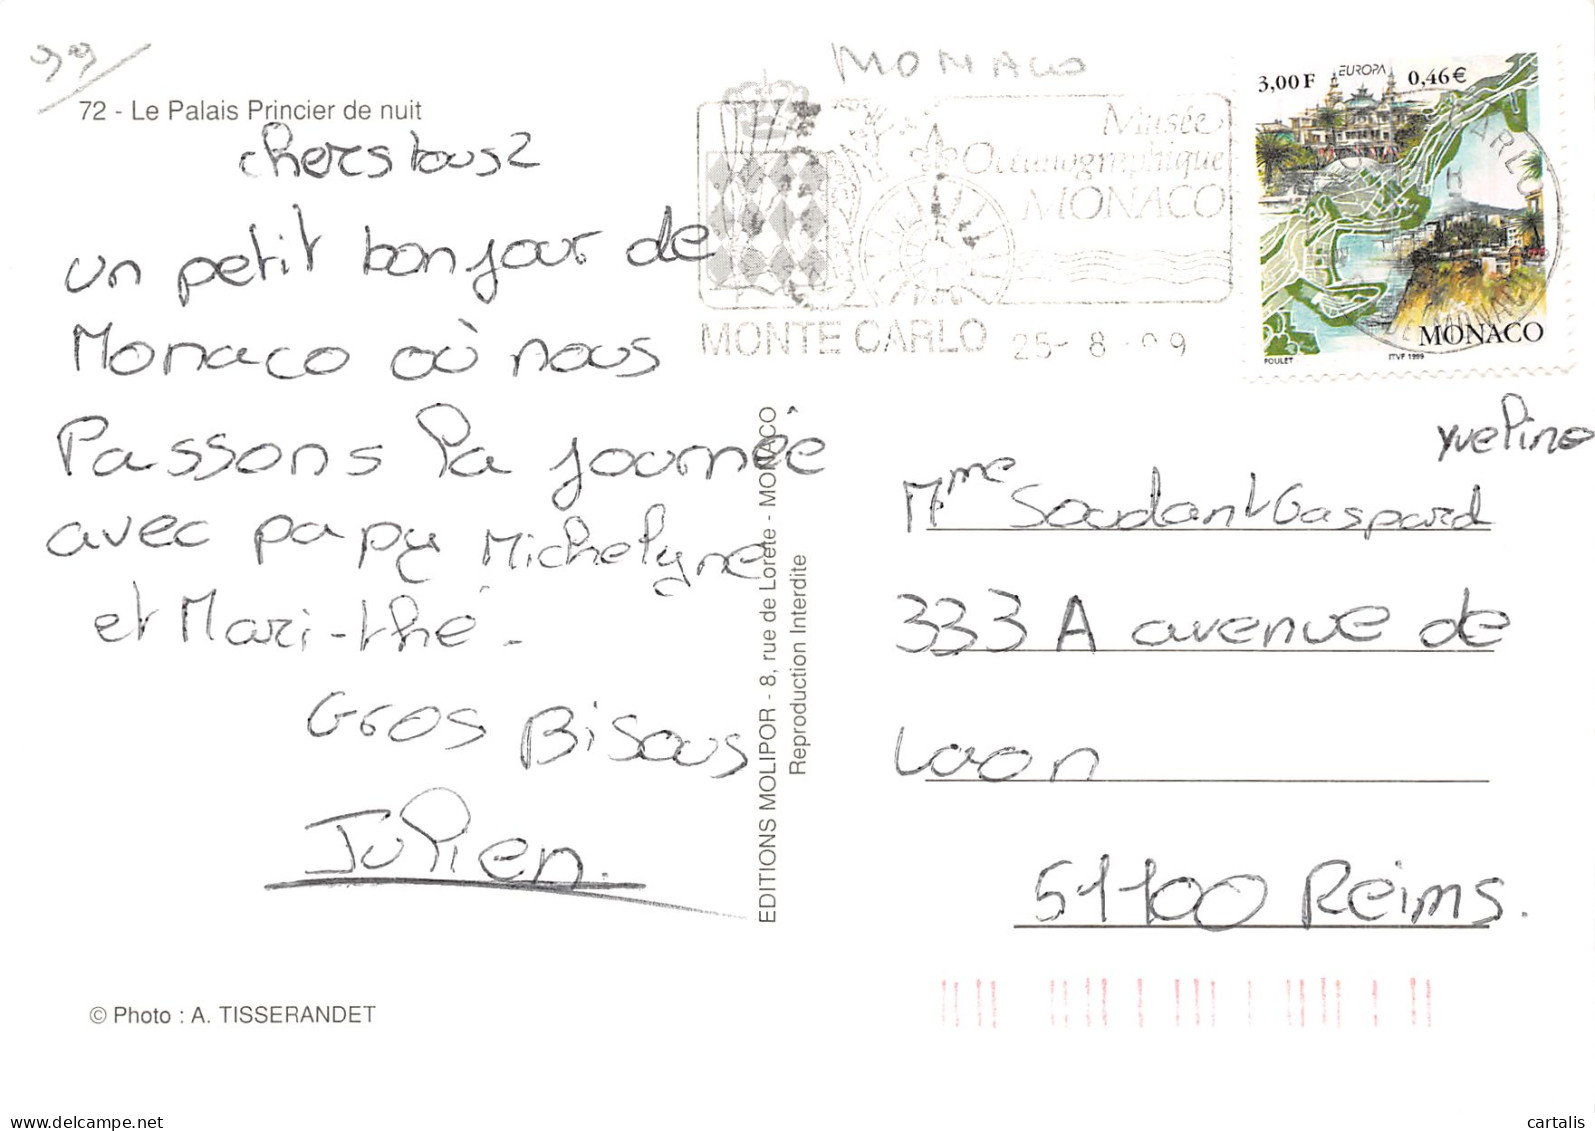 99
72 - Le Palais Princier de nuit
chers tous 2
un petit bonjour de
Monaco où nous
Passons la journée
avec papy Michelyne
et Mari-thé -
Gros Bisous
Julien.
© Photo : A. TISSERANDET
EDITIONS MOLIPOR - 8, rue de Lorète - MONACO
Reproduction Interdite
MONACO
Musée
Océanographique
MONACO
MONTE CARLO 25-8-99
3,00 F EUROPA 0,46€
MONACO
POULET ITVF 1999
Yveline
Mme Soudant Gaspard
333 A avenue de
Laon
51100 Reims.
delcampe.net
cartalis